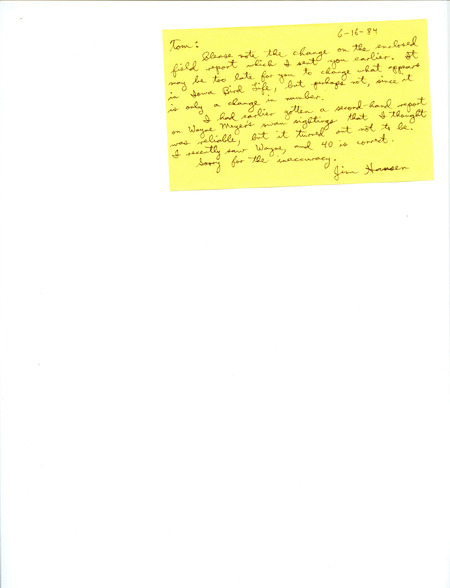 6-16-84
Tom:
Please note the change on the enclosed
field report which I sent you earlier. It
may be too late for you to change what appears
in Iowa Bird Life, but perhaps not, since it
is only a change in number.
I had earlier gotten a second-hand report
on Wayne Meyer's swan sightings that I thought
was reliable, but it turned out not to be.
I recently saw Wayne, and 40 is correct.
Sorry for the inaccuracy.
Jim Hansen